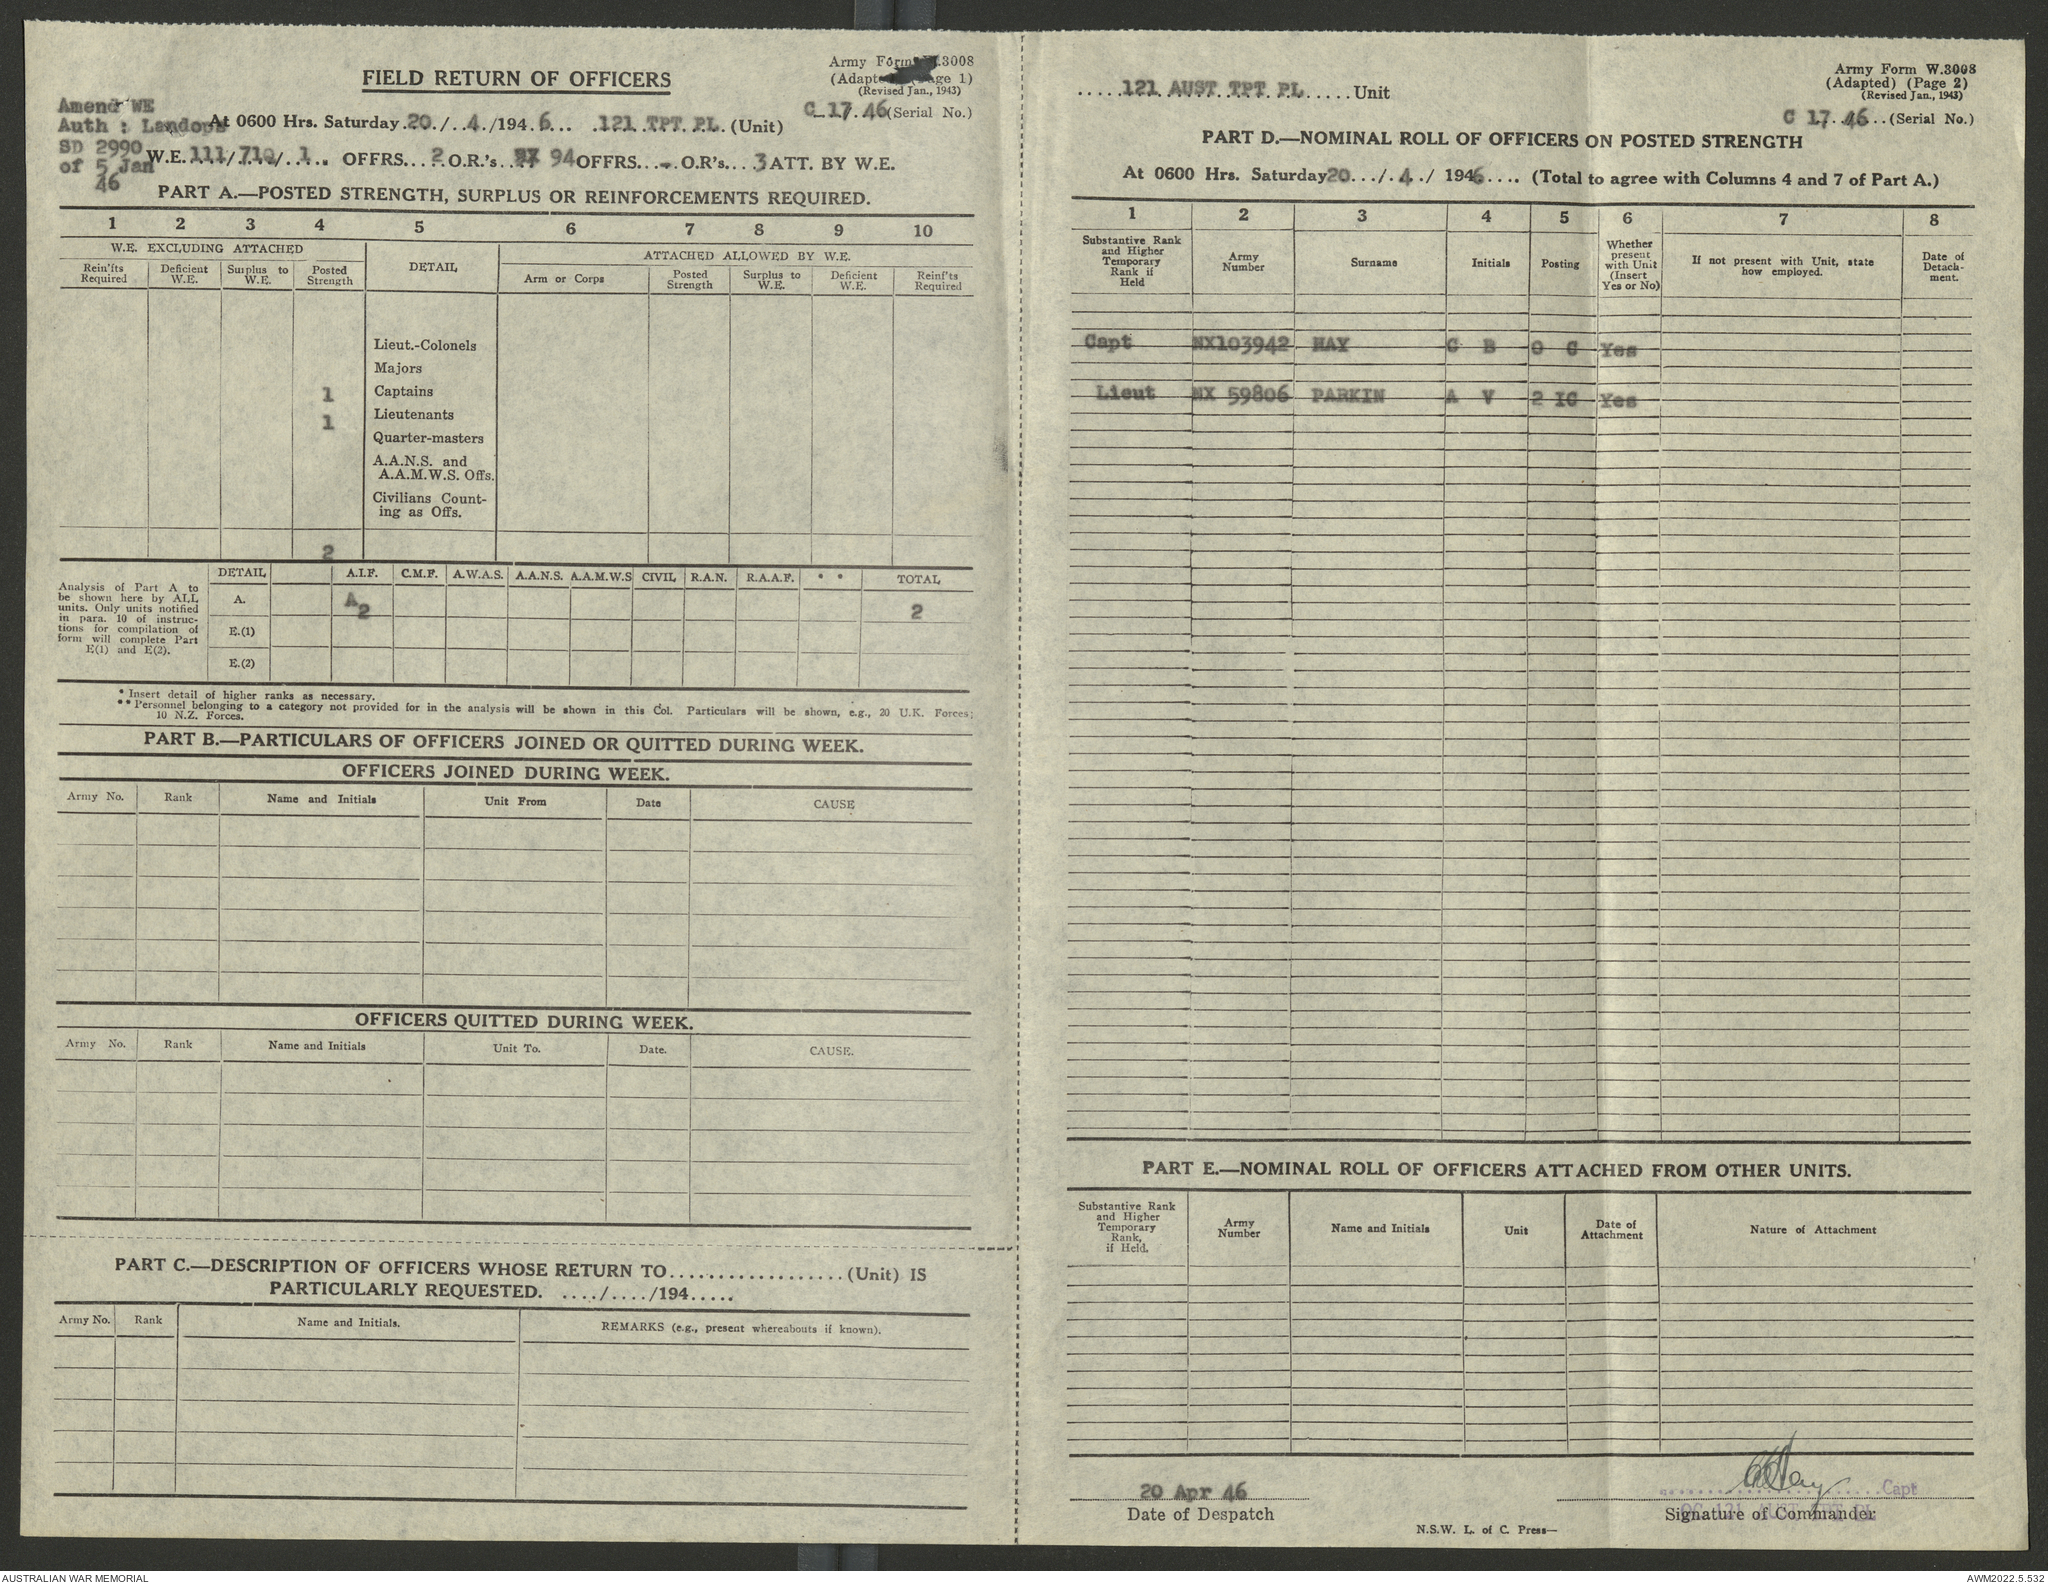 FIELD RETURN OF OFFICERS
Army Form W.3008
(Adapted) (Page 1)
(Revised Jan., 1943)
Amend WE
Auth : Landops
SD 2990
of 5 Jan
46
C 17. 46 (Serial No.)
At 0600 Hrs. Saturday 20 / 4 /194 6 ... 121 TPT PL. (Unit)
W.E. 111/ 710/ 1 .. OFFRS...2 O.R.'s.. 94 OFFRS...- O.R's... 3 ATT. BY W.E.
PART A.—POSTED STRENGTH, SURPLUS OR REINFORCEMENTS REQUIRED.
1 2 3 4 5 6 7 8 9 10
W.E. EXCLUDING ATTACHED DETAIL ATTACHED ALLOWED BY W.E.
Rein'fts Required Deficient W.E. Surplus to W.E. Posted Strength Arm or Corps Posted Strength Surplus to W.E. Deficient W.E. Reinf'ts Required
Lieut.-Colonels
Majors
1 Captains
1 Lieutenants
Quarter-masters
A.A.N.S. and
A.A.M.W.S. Offs.
Civilians Count-
ing as Offs.
2
Analysis of Part A to
be shown here by ALL
units. Only units notified
in para. 10 of instruc-
tions for compilation of
form will complete Part
E(1) and E(2).
DETAIL A.I.F. C.M.F. A.W.A.S. A.A.N.S. A.A.M.W.S CIVIL R.A.N. R.A.A.F. * * TOTAL
A. A 2 2
E.(1)
E.(2)
* Insert detail of higher ranks as necessary.
** Personnel belonging to a category not provided for in the analysis will be shown in this Col. Particulars will be shown, e.g., 20 U.K. Forces;
10 N.Z. Forces.
PART B.—PARTICULARS OF OFFICERS JOINED OR QUITTED DURING WEEK.
OFFICERS JOINED DURING WEEK.
Army No. Rank Name and Initials Unit From Date CAUSE
OFFICERS QUITTED DURING WEEK.
Army No. Rank Name and Initials Unit To. Date. CAUSE.
PART C.—DESCRIPTION OF OFFICERS WHOSE RETURN TO................... (Unit) IS
PARTICULARLY REQUESTED. ..../..../194.....
Army No. Rank Name and Initials. REMARKS (e.g., present whereabouts if known).
Army Form W.3008
(Adapted) (Page 2)
(Revised Jan., 1943)
.....121 AUST TPT PL.....Unit
C 17. 46 ..(Serial No.)
PART D.—NOMINAL ROLL OF OFFICERS ON POSTED STRENGTH
At 0600 Hrs. Saturday 20.../. 4 ./ 1946.... (Total to agree with Columns 4 and 7 of Part A.)
1 2 3 4 5 6 7 8
Substantive Rank and Higher Temporary Rank if Held Army Number Surname Initials Posting Whether present with Unit (Insert Yes or No) If not present with Unit, state how employed. Date of Detach- ment.
Capt NX103942 HAY C B O C Yes
Lieut NX 59806 PARKIN A V 2 IC Yes
PART E.—NOMINAL ROLL OF OFFICERS ATTACHED FROM OTHER UNITS.
Substantive Rank and Higher Temporary Rank, if Held. Army Number Name and Initials Unit Date of Attachment Nature of Attachment
20 Apr 46
Date of Despatch
N.S.W. L. of C. Press—
Capt
OC 121 AUST TPT PL
Signature of Commander
AUSTRALIAN WAR MEMORIAL
AWM2022.5.532